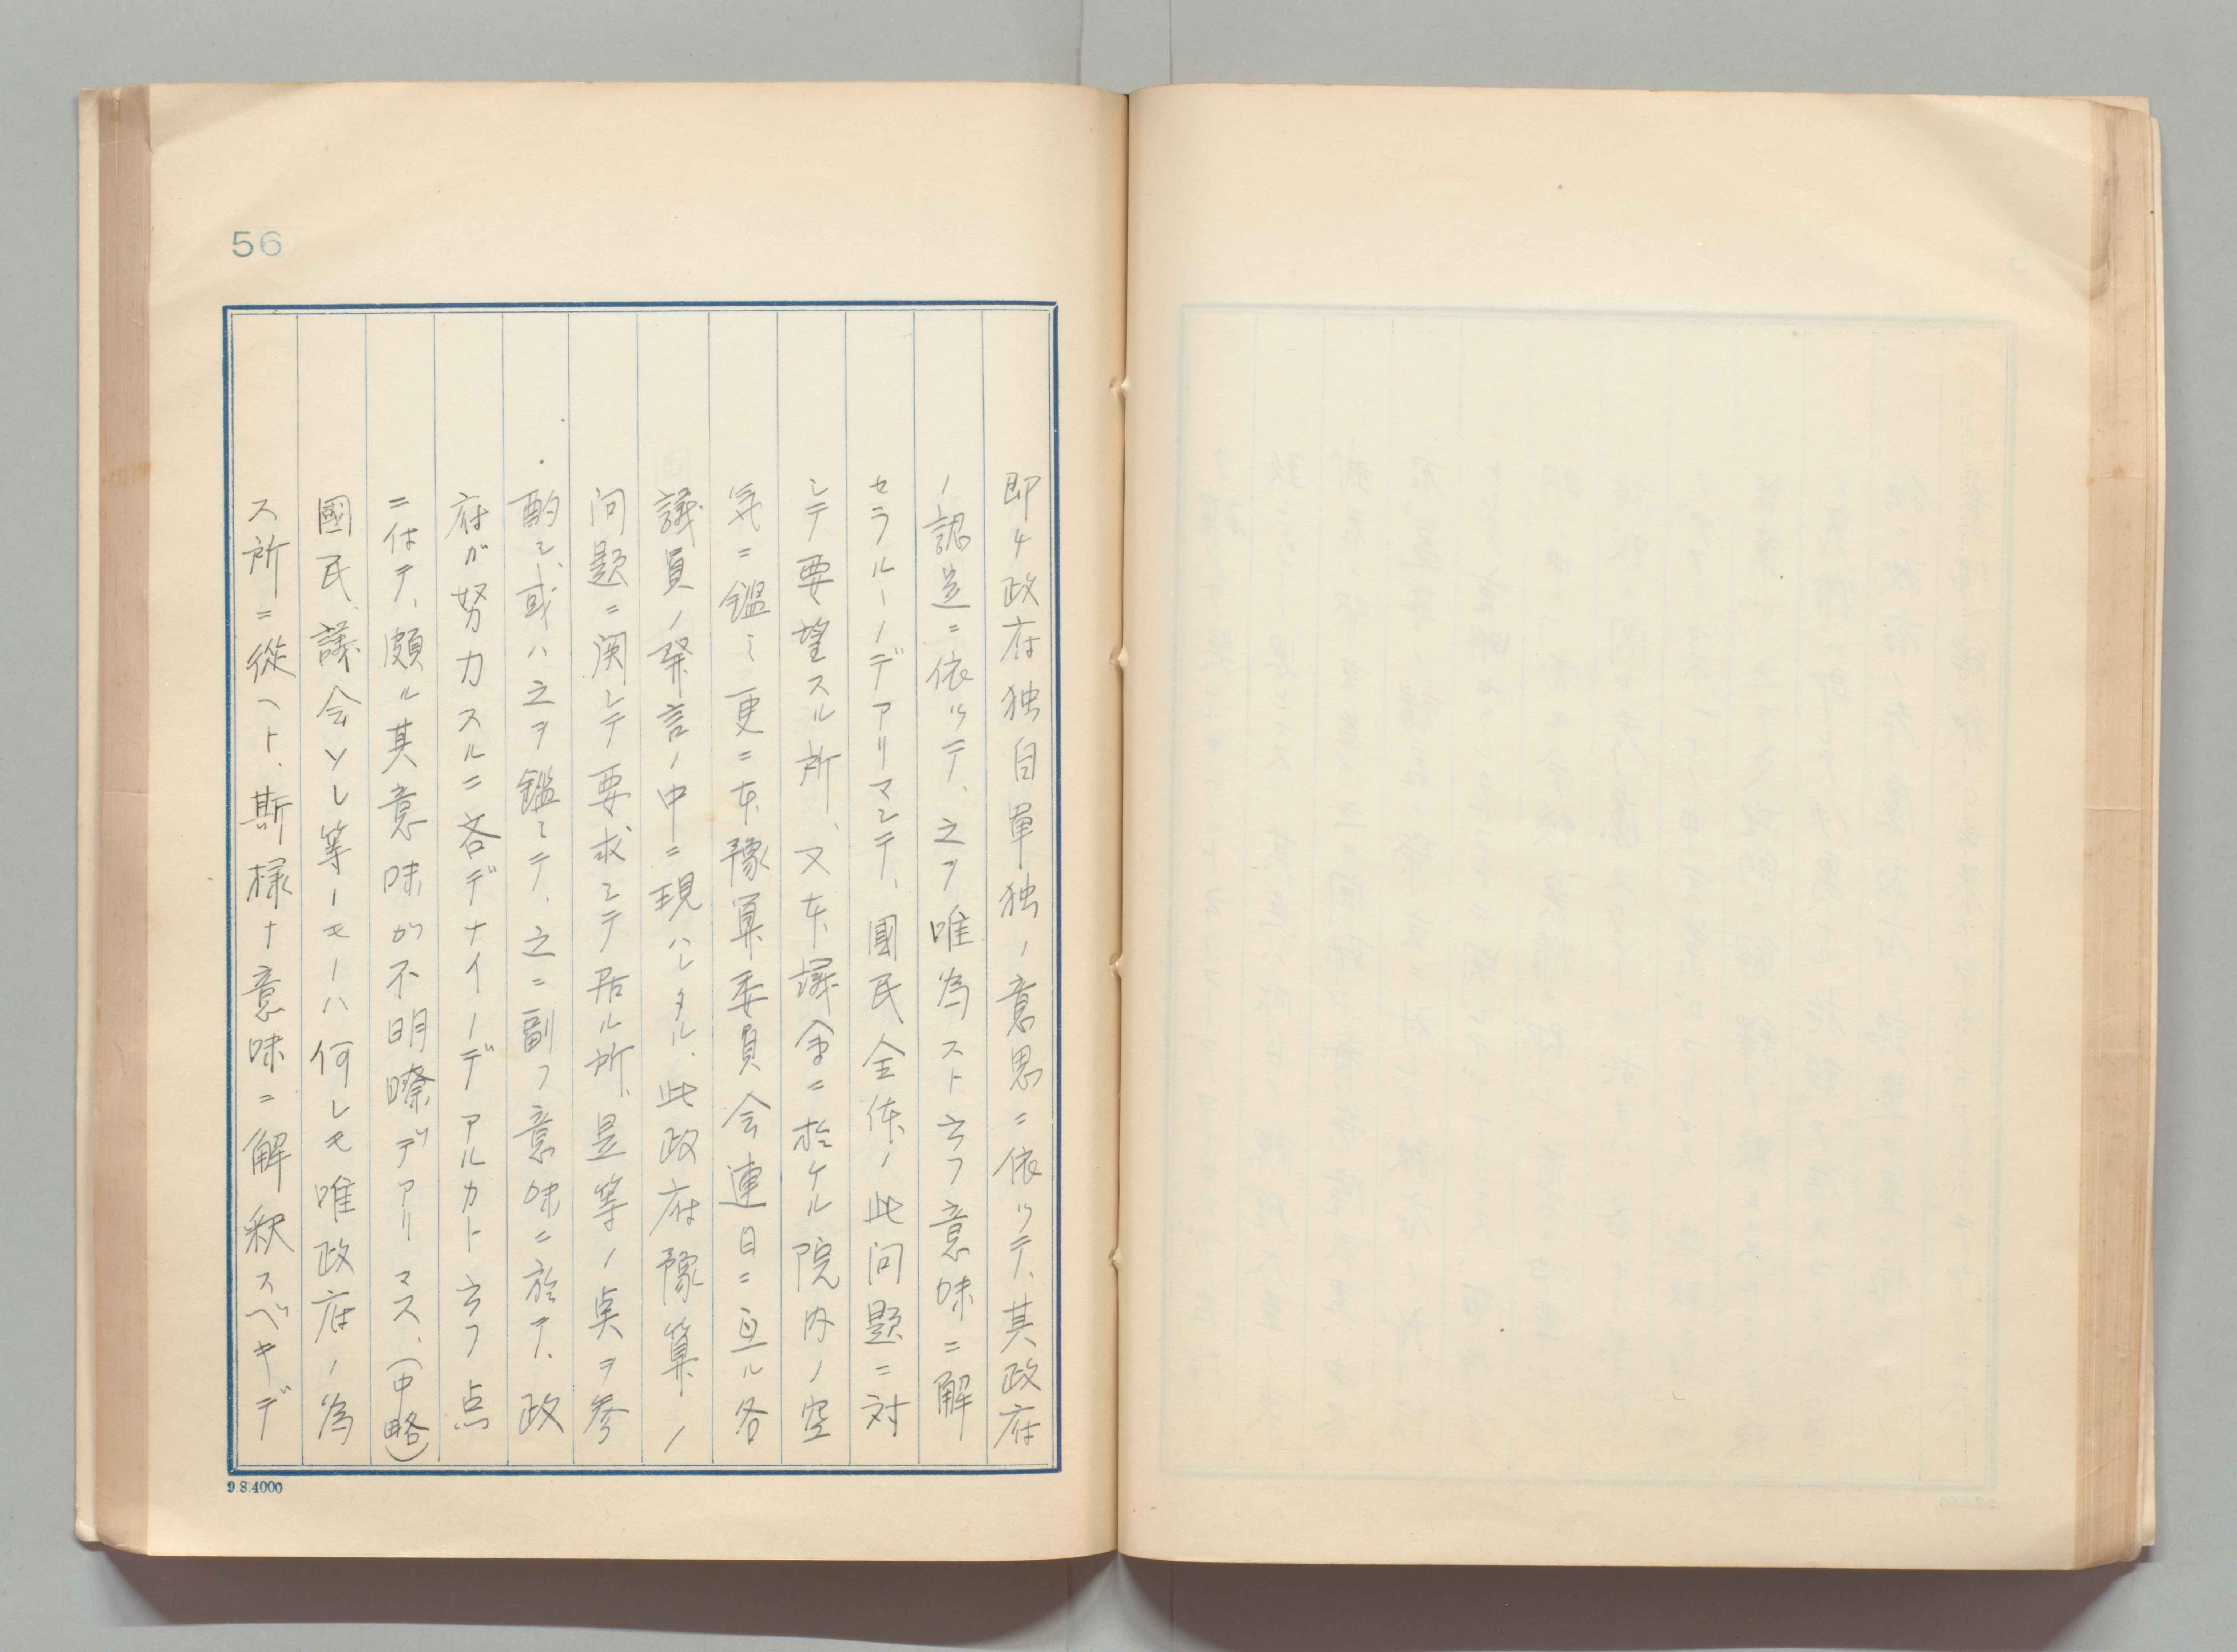 56
即チ政府独自単独ノ意思ニ依ツテ、其政府
ノ認定ニ依ツテ、之ヲ唯為スト云フ意味ニ解
セラルーノデアリマシテ、國民全体ノ此問題ニ対
シテ要望スル所、又本議会ニ於ケル院内ノ空
気ニ鑑ミ更ニ本豫算委員会連日ニ亘ル各
議員ノ発言ノ中ニ現ハレタル、此政府豫算ノ
问題ニ関シテ要求シテ居ル所、是等ノ点ヲ参
酌シ、或ハ之ヲ鑑ミテ、之ニ副フ意味ニ於テ、政
府ガ努力スルニ吝デナイノデアルカト云フ点
ニ付テ、頗ル其意味ガ不明瞭デアリマス、(中略)
國民、議会ソレ等ノモノハ何レモ唯政府ノ為
ス所ニ從ヘト、斯様ナ意味ニ解釈スベキデ
9.8.4000